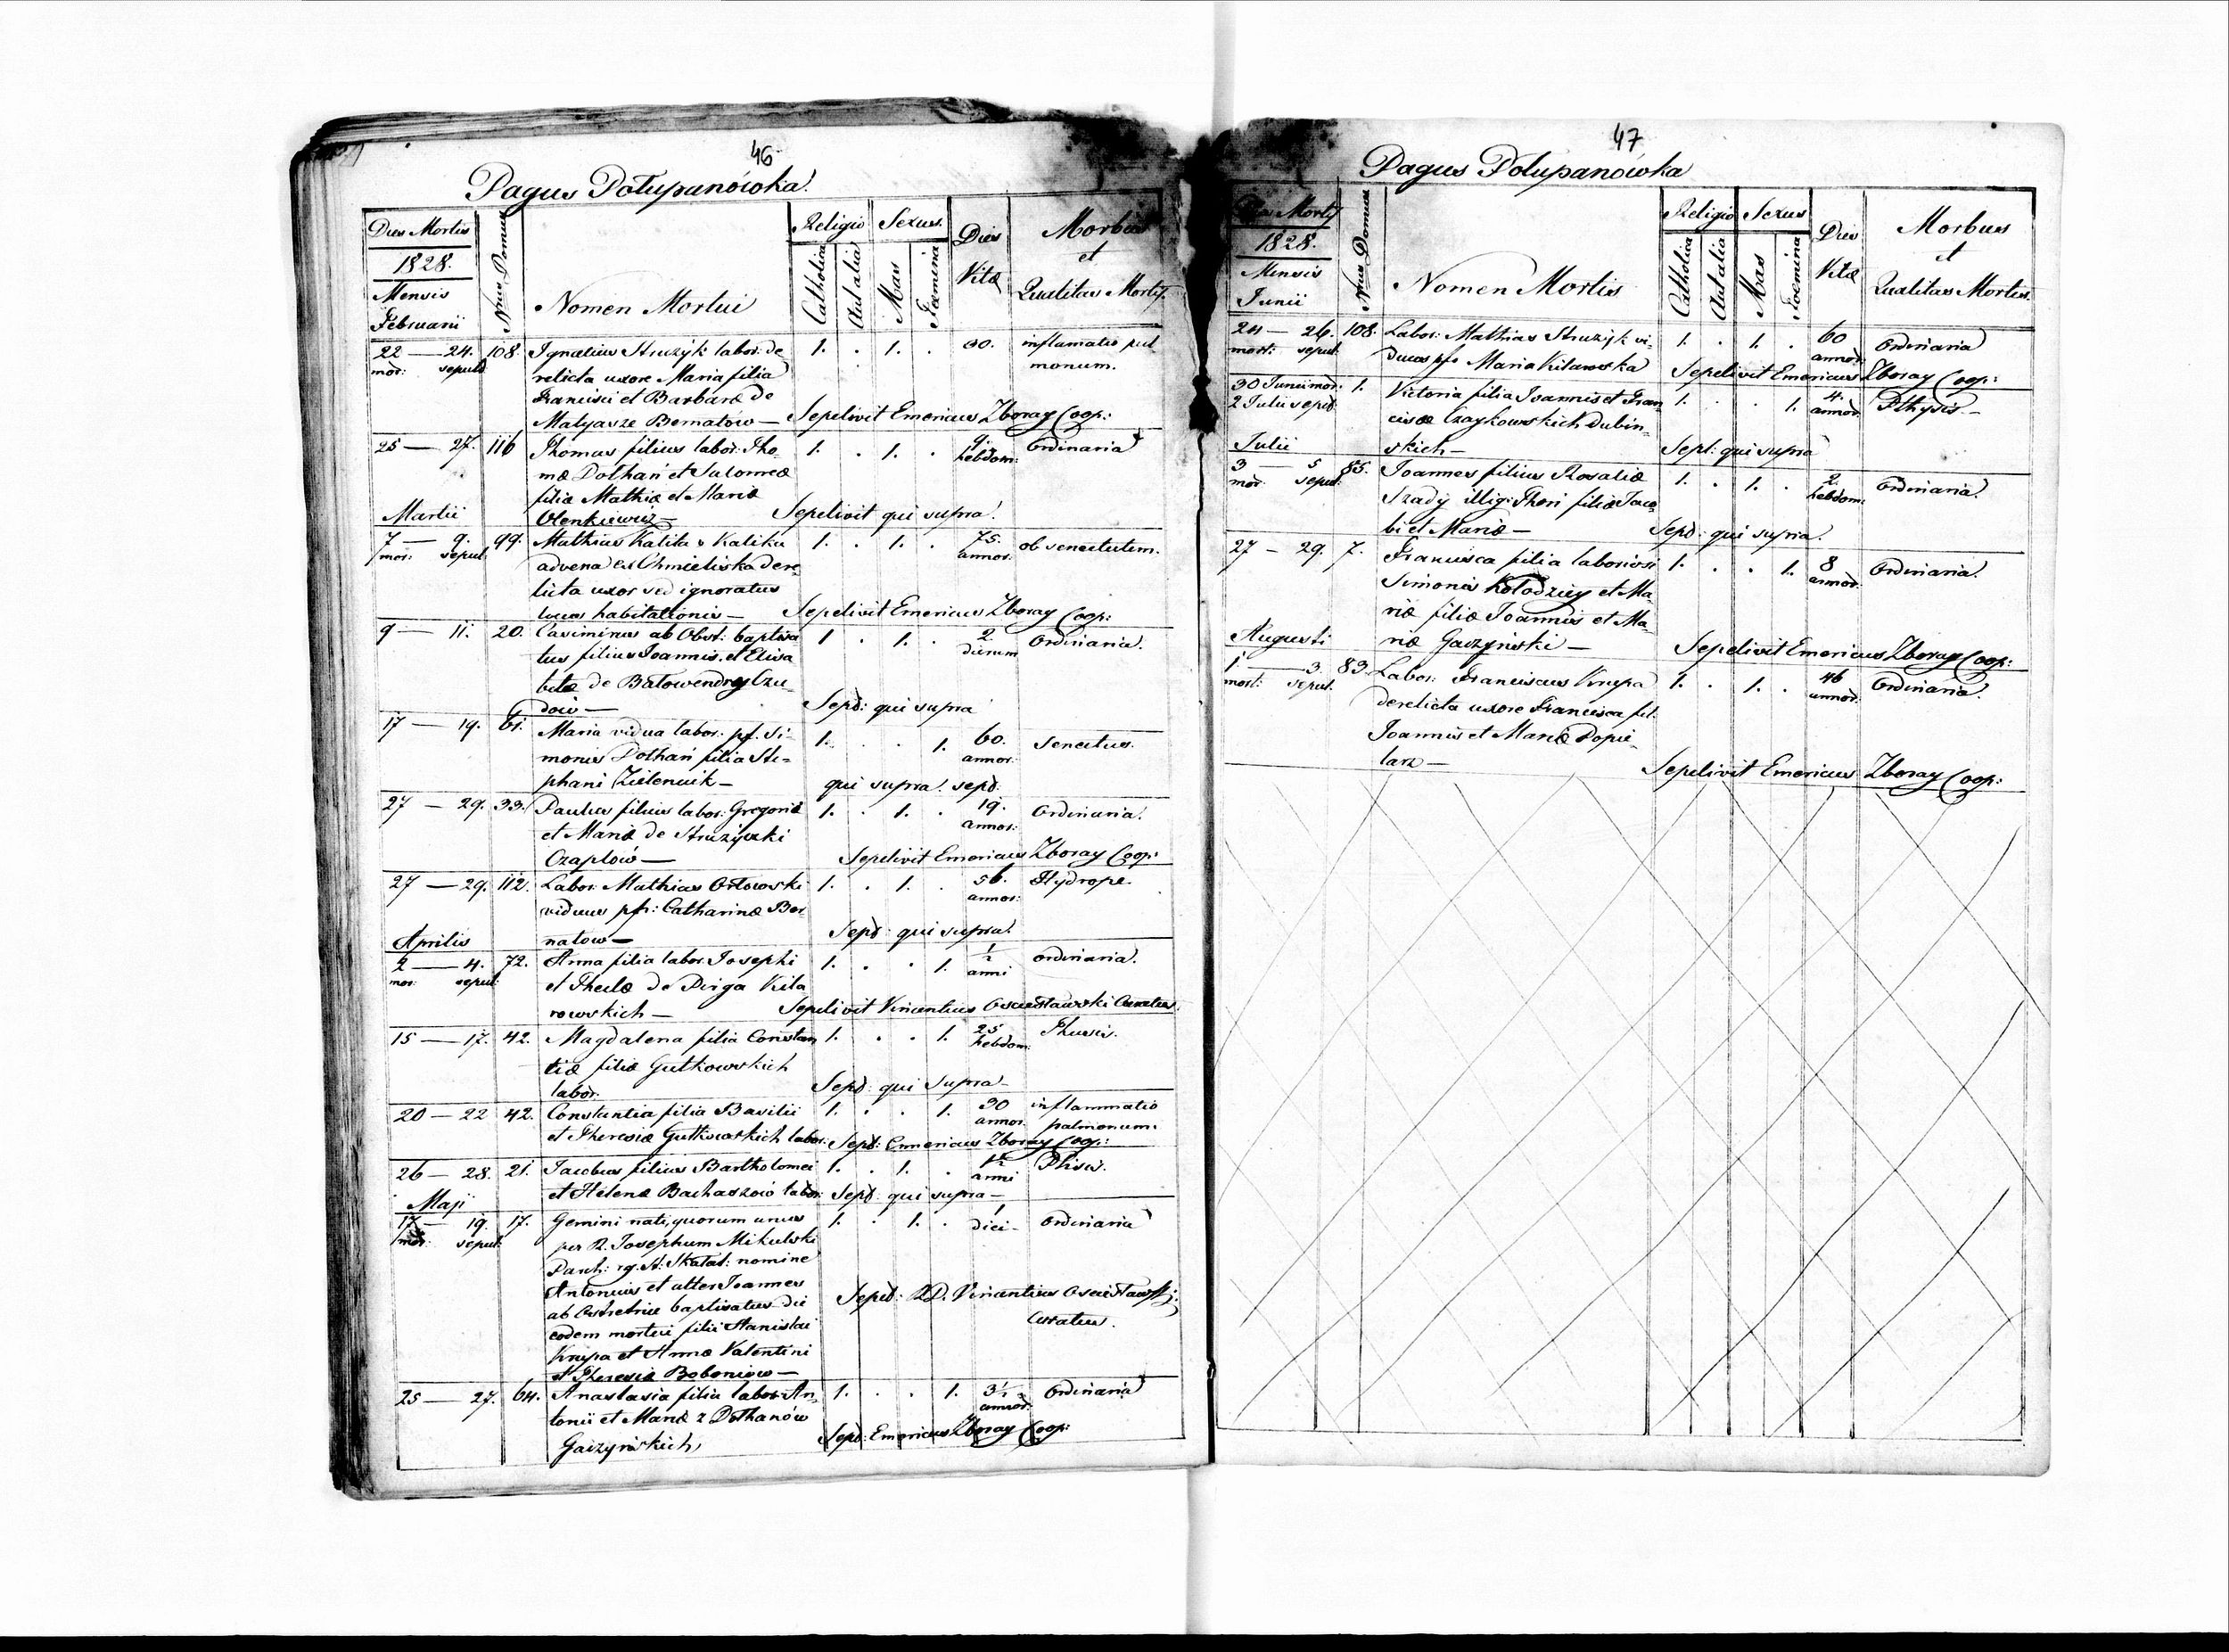 46
Pagus Połupanówka.
Dies Mortis
1828.
Mensis
Februarii
Nrus Domus
Nomen Mortui
Religio
Catholica
Aut alia
Sexus.
Mas
Foemina
Dies
Vitæ
Morbus
et
Qualitas Mortis.
22 — 24. 108. Ignatius Struzyk labor: de 1. . 1. . 30. inflamatio pul
mor: sepult: relicta uxore Maria filia monum.
Francisci et Barbaræ de
Matyasze Bernatów — Sepelivit Emericus Zboray Coop:
25 — 27. 116 Thomas filius labor: Tho- 1. . 1. . 9. Ordinaria
mæ Dołhań et Salomeæ hebdom:
filiæ Mathiæ et Mariæ
Martii Olenkiewicz — Sepelivit qui supra.
7 — 9. 99. Mathias Kalita v Kalika 1. . 1. . 75. ob senectutem.
mor: sepul: advena ex Chmieliska dere- annor:
licta uxor sed ignoratus
locus habitationis — Sepelivit Emericus Zboray Coop:
9 — 11. 20. Casimirus ab Obst: baptisa 1 . 1. . 2. Ordinaria.
tus filius Joannis et Elisa dierum
betæ de
dów — Sepd: qui supra
17 — 19. 61. Maria vidua labor: pf. Si- 1. . . 1. 60. Senectus.
monis Dołhań filia Ste= annor:
phani Zielenuik — qui supra sepd.
27 — 29. 33. Paulus filius labor: Gregorii 1. . 1. . 19. Ordinaria.
et Mariæ de Struzyczki annor:
Czaplów — Sepelivit Emericus Zboray Coop:
27 — 29. 112. Labor: Mathias Orłowski 1. . 1. . 56. Hydrope.
viduus pfr: Catharinæ Ber annor:
Aprilis natow — Sepd: qui supra.
2 — 4. 72. Anna filia labor: Josephi 1. . . 1. ½ ordinaria.
mor: sepul: et Theclæ de Piga Kita anni
rowskich — Sepelivit Vincentius Curatus.
15 — 17. 42. Magdalena filia Constan 1. . . 1. 25 Thusis.
tiæ filiæ Gutkowskich hebdom:
labor: Sepd: qui supra —
20 — 22 42. Constantia filia Basilii 1. . . 1. 30 inflammatio
et Theresiæ Gutkowskich labor: annor. pulmonum.
Sepd: Emericus Zboray Coop:
26 — 28. 21. Jacobus filius Bartholomei 1. . 1. . 1½ Phisis.
et Helenæ Bachaszów labor: anni
Sepd: qui supra —
Maji
17 — 19. 17. Gemini nati, quorum unus 1. . 1. . 1 Ordinaria
mor: sepul: per R. Josephum Mikulski diei —
Parch: rg. St: Skałat: nomine
Antonius et alter Joannes
ab Obstetrice baptisatus die Sepd: RD. Vincentius
eodem mortui filii Stanislai Curatus.
Krupa et Annæ Valentini
et Theresiæ Boboniow —
25 — 27. 64. Anastasia filia labor: An- 1. . . 1. 3½ Ordinaria
tonii et Mariæ z Dołhanów annor:
Gaizyńskich, Sepd: Emericus Zboray Coop:
47
Pagus Połupanówka
Dies Mortis
1828.
Mensis
Junii
Nrus Domus
Nomen Mortis
Religio
Catholica
Aut alia
Sexus
Mas
Foemina
Dies
Vitæ
Morbus
et
Qualitas Mortis.
24 — 26. 108. Labor: Mathias Struzyk vi- 1. . 1. . 60 Ordinaria
mort: sepul: duus pfr Maria Kitarowska annor:
Sepelivit Emericus Zboray Coop:
30 Junii mor: 1. Victoria filia Joannis et Fran 1. . . 1. 4. Pthysis. —
2 Julii sepd: ciscæ Czaykowskich Dubin- annor:
Julii skich — Sept: qui supra
3 — 5 85. Joannes filius Rosaliæ 1. . 1. . 2. Ordinaria.
mor: sepul: Szady illig: Thori filiæ Jaco- hebdom:
bi et Mariæ — Sepd: qui supra.
27 — 29. 7. Francisca filia laboriosi 1. . . 1. 8 Ordinaria.
Simonis Kołodziey et Ma- annor:
riæ filiæ Joannis et Ma-
Augusti riæ Gaczyński — Sepelivit Emericus Zboray Coop:
1 — 3 83. Labor: Franciscus Krupa 1. . 1. . 46 Ordinaria.
mort: sepul: derelicta uxore Francisca fil: annor:
Joannis et Mariæ Popie-
larz — Sepelivit Emericus Zboray Coop: